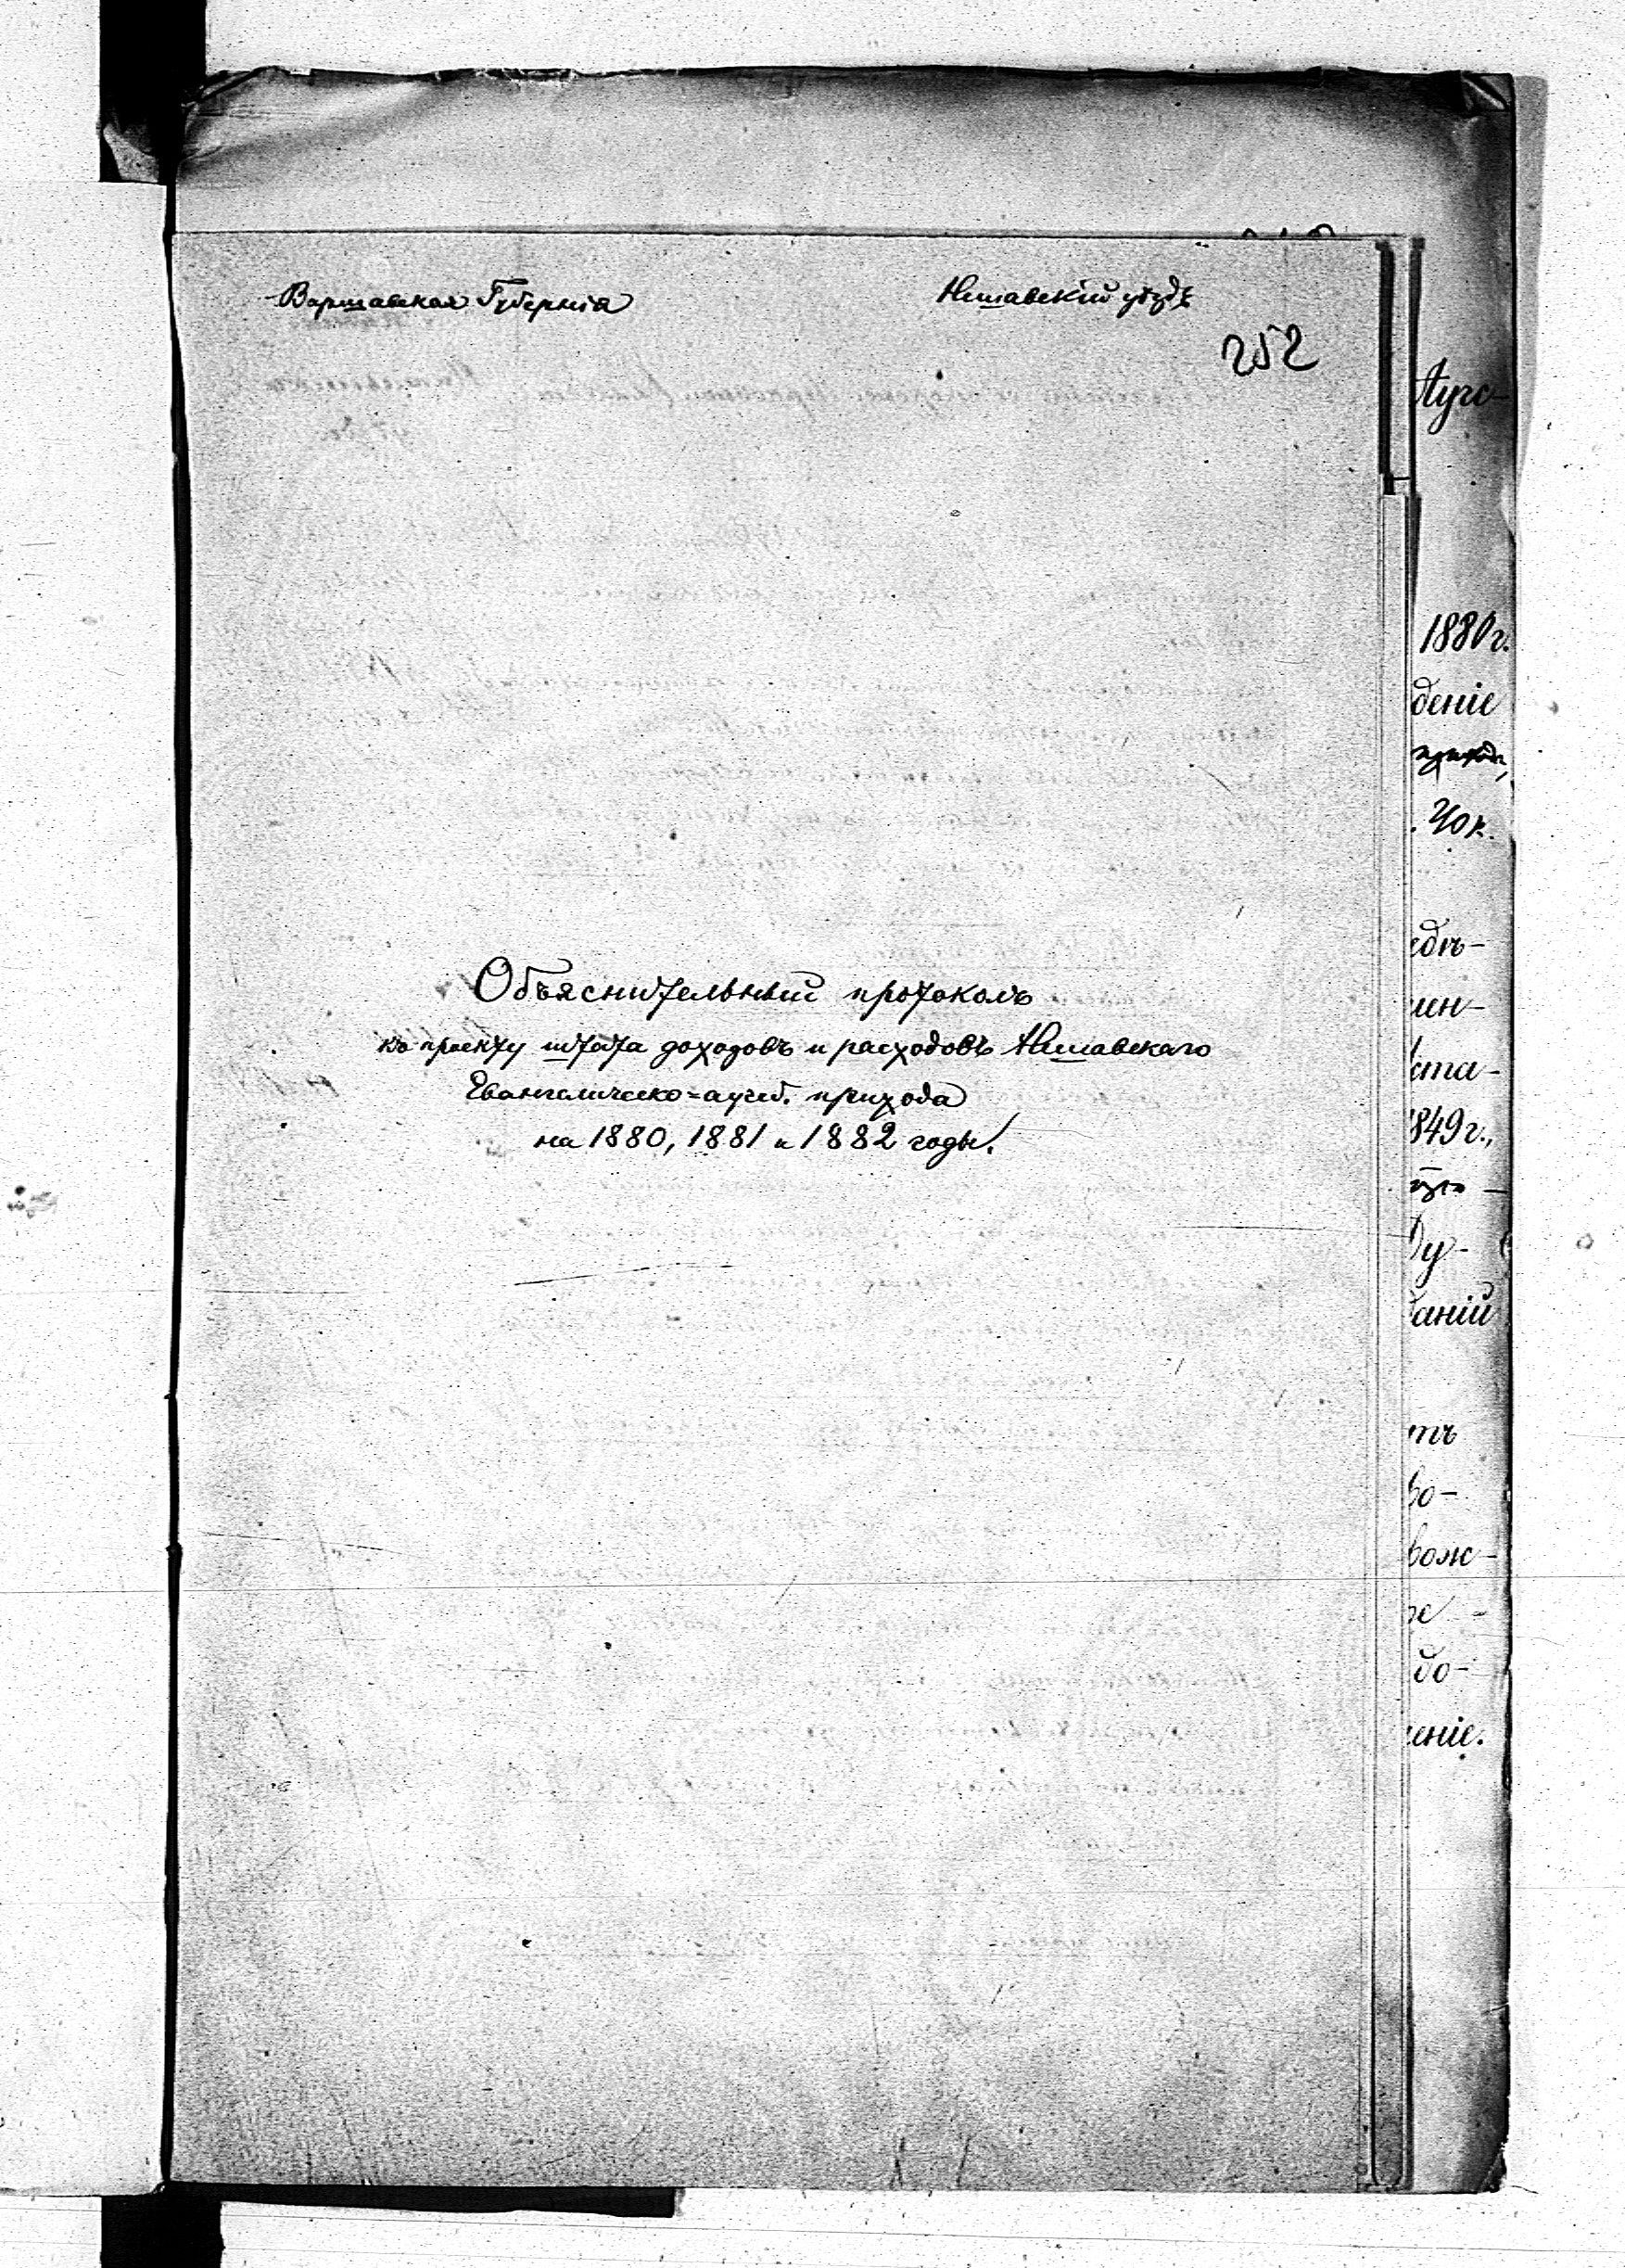 Варшавская Губернія
Нешавскій уѣздъ
252
Объяснительный протоколъ
къ проекту штата доходовъ и расходовъ Нешавскаго
Евангелическо=аугсб. прихода
на 1880, 1881 и 1882 годы.
Аугс-
1880г.
деніе
40 к.
ин-
ста-
1849г.,
Ду-
аній
тъ
во-
вож-
до-
еніе.